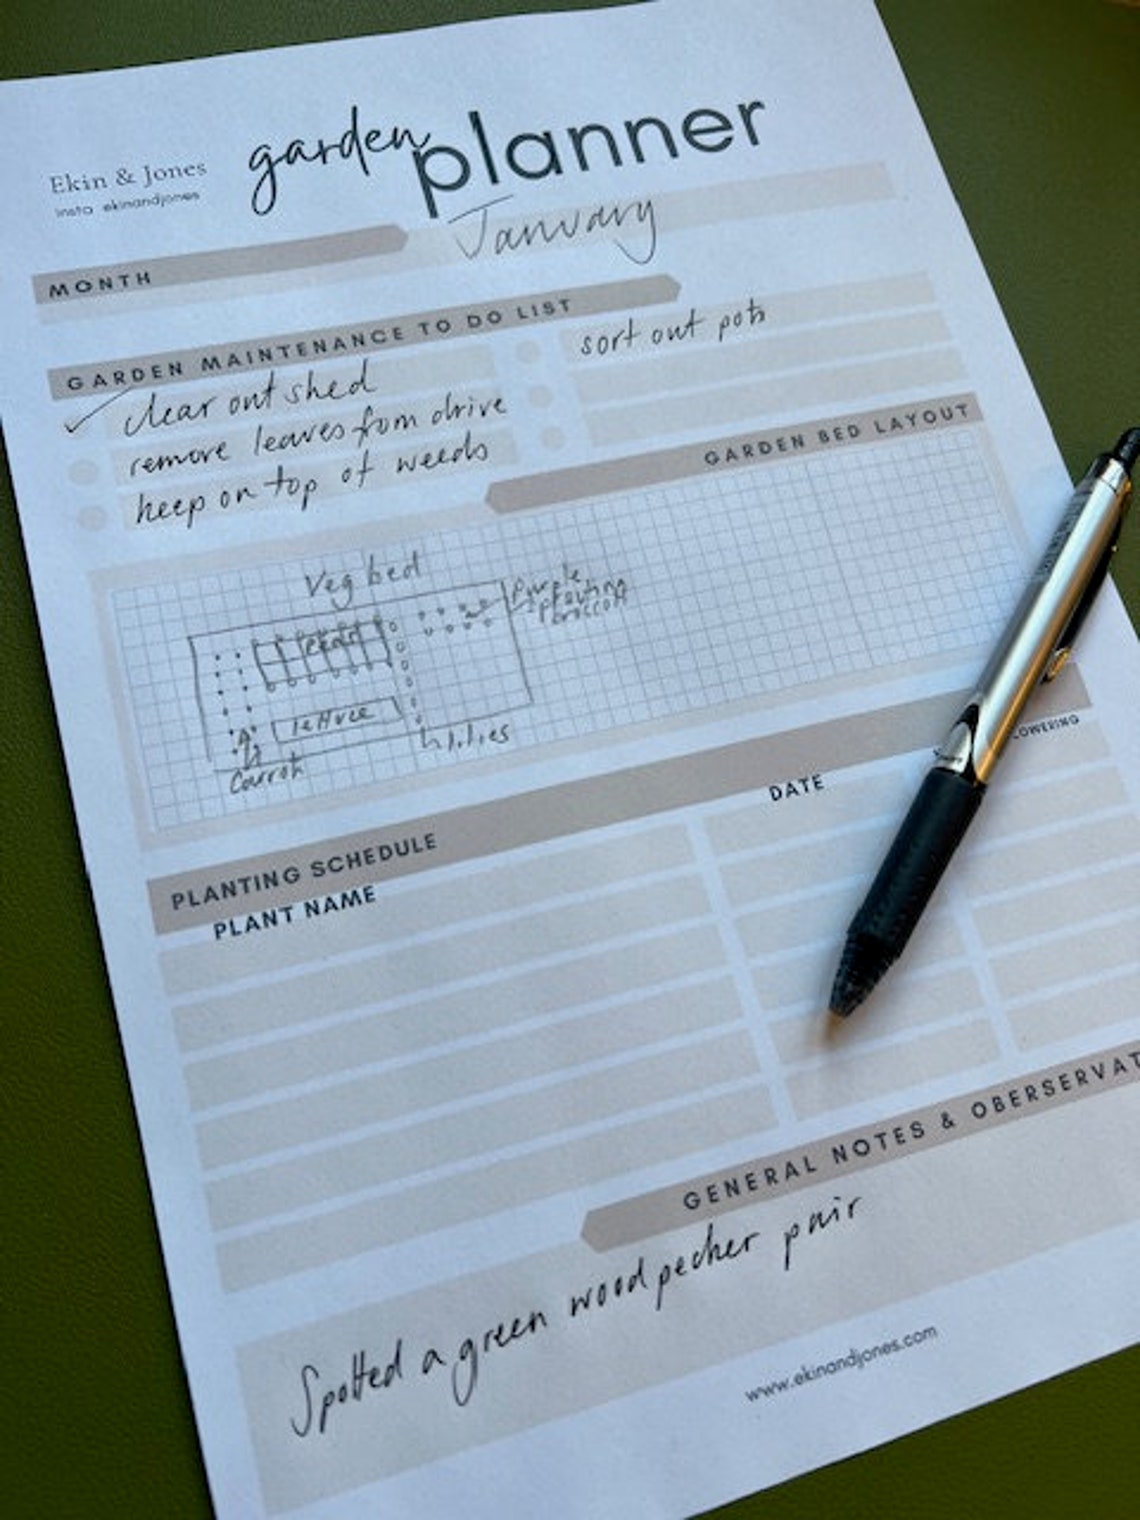 Ekin & Jones
insta ekinandjones
garden planner
MONTH
January
GARDEN MAINTENANCE TO DO LIST
clear out shed
remove leaves from drive
keep on top of weeds
sort out pots
GARDEN BED LAYOUT
Veg bed
Purple
sprouting
broccoli
peas
lettuce
lilies
Carrots
PLANTING SCHEDULE
PLANT NAME
DATE
GENERAL NOTES & OBERSERVAT
Spotted a green woodpecker pair
www.ekinandjones.com